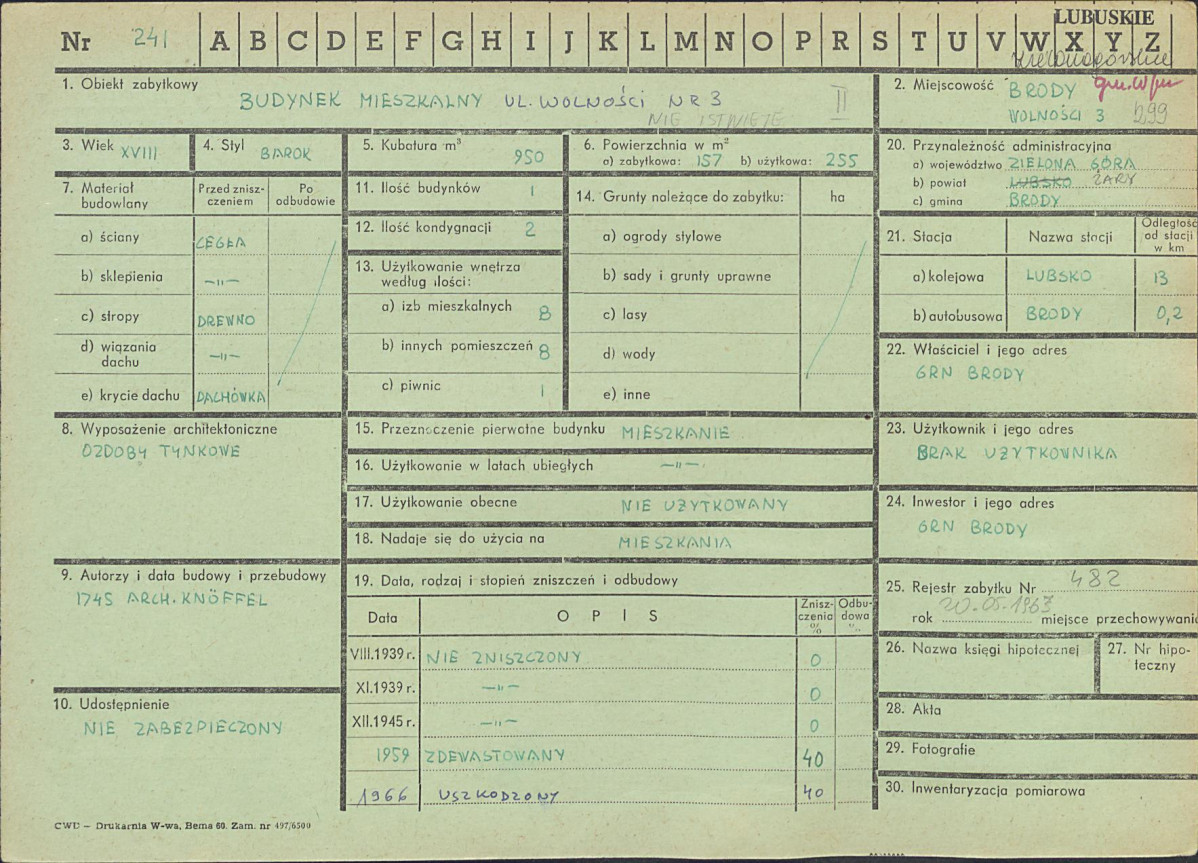 LUBUSKIE
Nr 241 A B C D E F G H I J K L M N O P R S T U V W X Y Z
zielonogórskie
1. Obiekt zabytkowy
BUDYNEK MIESZKALNY UL. WOLNOŚCI NR 3 II
NIE ISTNIEJE
2. Miejscowość BRODY
WOLNOŚCI 3
3. Wiek XVIII
4. Styl BAROK
5. Kubatura m³ 950
6. Powierzchnia w m²
a) zabytkowa: 157 b) użytkowa: 255
20. Przynależność administracyjna
a) województwo ZIELONA GÓRA
b) powiat LUBSKO ŻARY
c) gmina BRODY
7. Materiał budowlany
Przed zniszczeniem
Po odbudowie
a) ściany CEGŁA
b) sklepienia —"—
c) stropy DREWNO
d) wiązania dachu —"—
e) krycie dachu DACHÓWKA
11. Ilość budynków 1
12. Ilość kondygnacji 2
13. Użytkowanie wnętrza
według ilości:
a) izb mieszkalnych 8
b) innych pomieszczeń 8
c) piwnic 1
14. Grunty należące do zabytku: ha
a) ogrody stylowe
b) sady i grunty uprawne
c) lasy
d) wody
e) inne
21. Stacja
Nazwa stacji
Odległość
od stacji
w km
a) kolejowa LUBSKO 13
b) autobusowa BRODY 0,2
22. Właściciel i jego adres
GRN BRODY
8. Wyposażenie architektoniczne
OZDOBY TYNKOWE
15. Przeznaczenie pierwotne budynku MIESZKANIE
16. Użytkowanie w latach ubiegłych —"—
17. Użytkowanie obecne NIE UŻYTKOWANY
18. Nadaje się do użycia na MIESZKANIA
23. Użytkownik i jego adres
BRAK UŻYTKOWNIKA
24. Inwestor i jego adres
GRN BRODY
9. Autorzy i data budowy i przebudowy
1745 ARCH. KNÖFFEL
19. Data, rodzaj i stopień zniszczeń i odbudowy
Data OPIS Zniszczenia % Odbudowa %
VIII.1939 r. NIE ZNISZCZONY 0
XI.1939 r. —"— 0
XII.1945 r. —"— 0
1959 ZDEWASTOWANY 40
1966 USZKODZONY 40
25. Rejestr zabytku Nr 482
rok 20.05.1963 miejsce przechowywani
26. Nazwa księgi hipotecznej
27. Nr hipoteczny
10. Udostępnienie
NIE ZABEZPIECZONY
28. Akta
29. Fotografie
30. Inwentaryzacja pomiarowa
CWD — Drukarnia W-wa, Bema 60. Zam. nr 497/6500